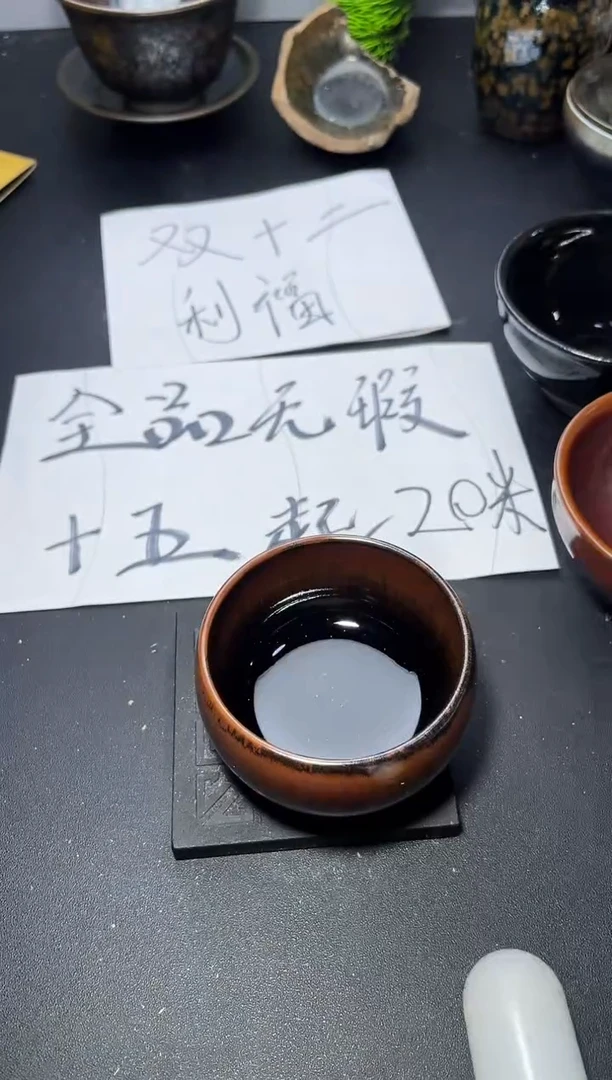 双十二
利福
全品无瑕
十五起20米